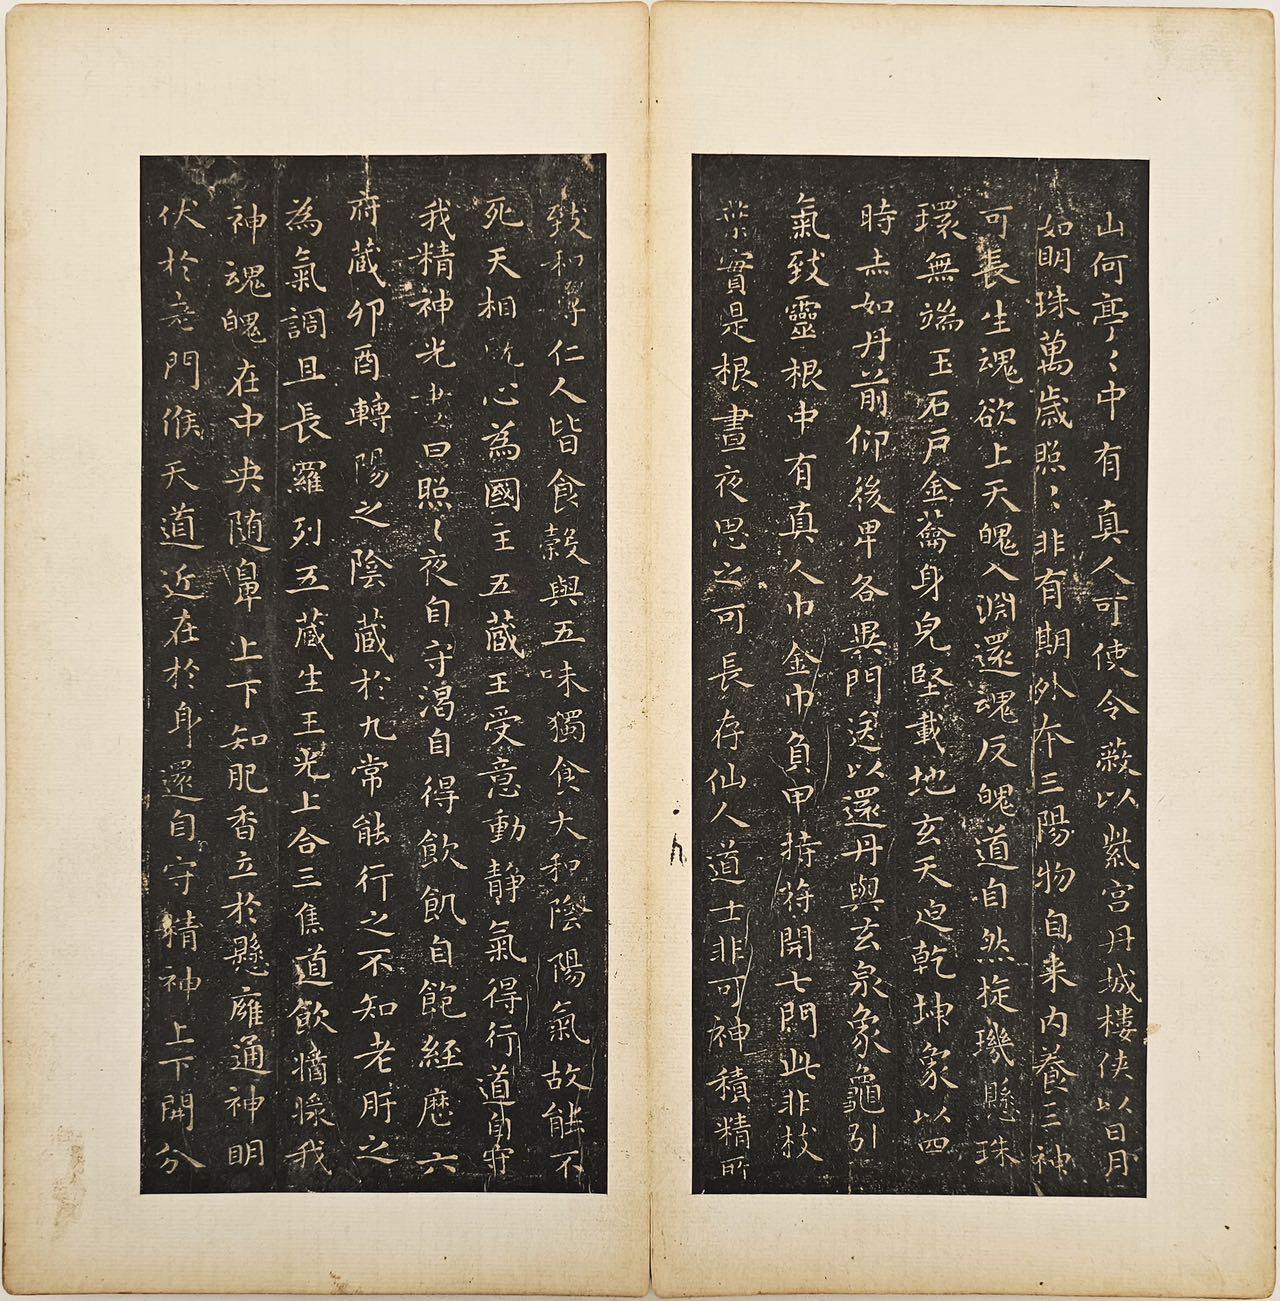 山何亭〻中有真人可使令蔽以紫宮丹城樓侠以日月
如明珠萬歲照〻非有期外本三陽物自来内養三神
可長生魂欲上天魄入淵還魂反魄道自然旋璣懸珠
環無端玉石戶金籥身皃堅載地玄天迫乾坤象以四
時赤如丹前仰後卑各異門送以還丹與玄泉象龜引
氣致靈根中有真人巾金巾負甲持符開七門此非枝
葉實是根晝夜思之可長存仙人道士非可神積精所
致和專仁人皆食穀與五味獨食大和陰陽氣故能不
死天相既心為國主五蔵王受意動静氣得行道自守
我精神光晝日照〻夜自守渴自得飲飢自飽経歷六
府蔵卯酉轉陽之陰蔵於九常能行之不知老肝之
為氣調且長羅列五蔵生王光上合三焦道飲漿我
神魂魄在中央随鼻上下知肥香立於懸廱通神明
伏於老門候天道近在於身還自守精神上下開分